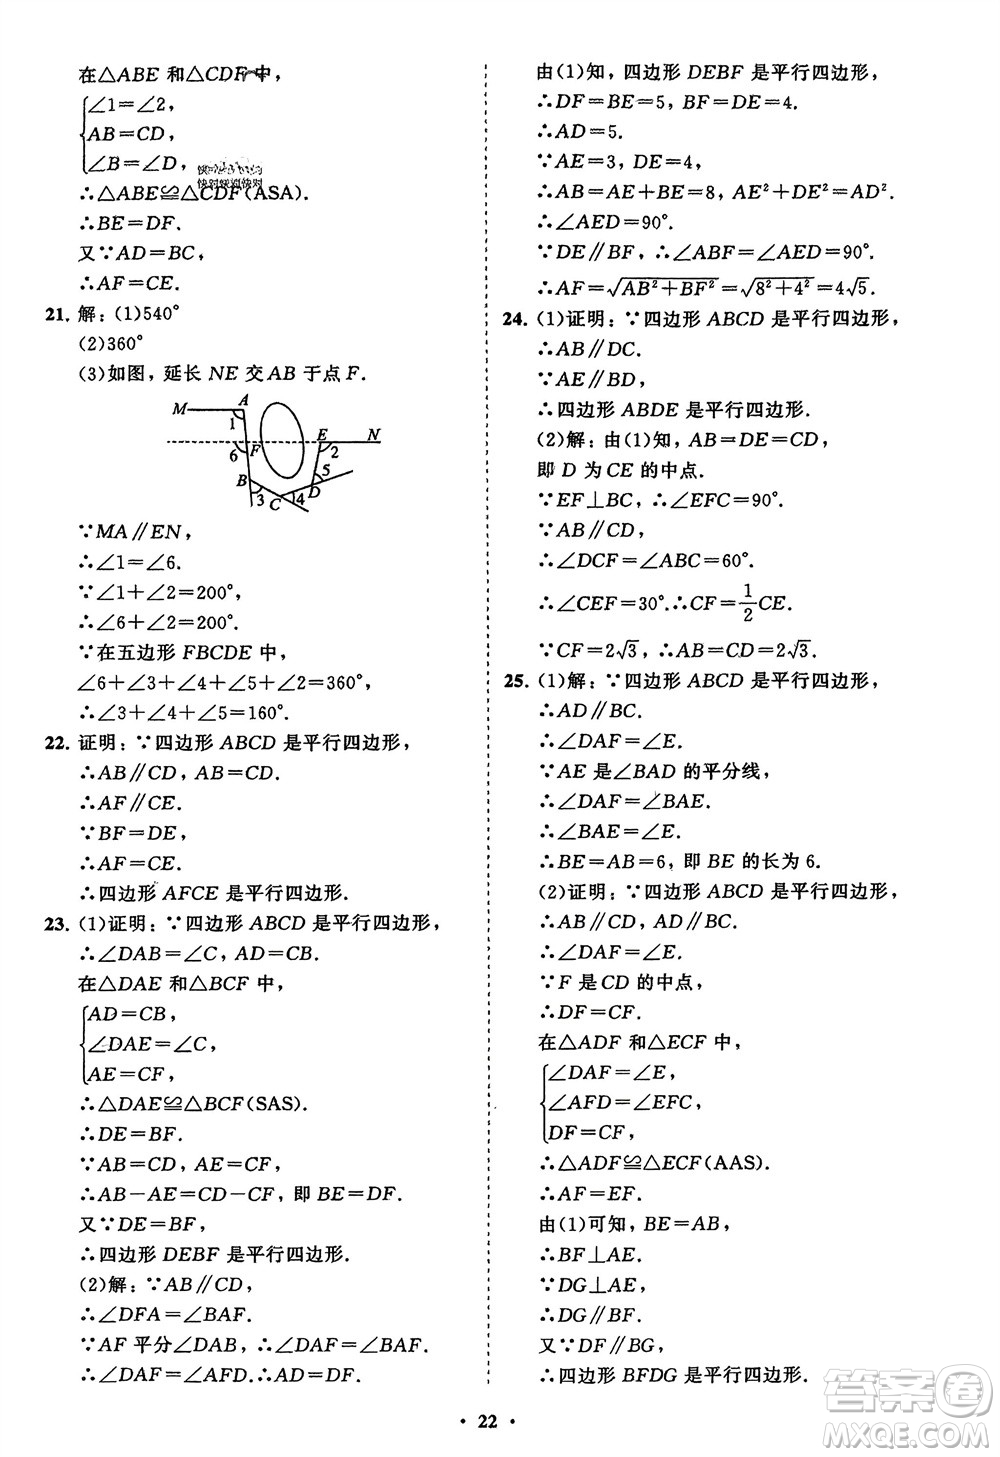 在△ABE 和△CDF中，
∠1=∠2，
AB=CD，
∠B=∠D，
∴△ABE≌△CDF(ASA).
∴BE=DF.
又∵AD=BC，
∴AF=CE.
21. 解：(1)540°
(2)360°
(3)如图，延长 NE 交 AB 于点 F.
M A 1 E N
6 F 2
B 5
3 C 4 D
∵MA∥EN，
∴∠1=∠6.
∵∠1+∠2=200°，
∴∠6+∠2=200°.
∵在五边形 FBCDE 中，
∠6+∠3+∠4+∠5+∠2=360°，
∴∠3+∠4+∠5=160°.
22. 证明：∵四边形 ABCD 是平行四边形，
∴AB∥CD，AB=CD.
∴AF∥CE.
∵BF=DE，
∴AF=CE.
∴四边形 AFCE 是平行四边形.
23. (1)证明：∵四边形 ABCD 是平行四边形，
∴∠DAB=∠C，AD=CB.
在△DAE 和△BCF 中，
AD=CB，
∠DAE=∠C，
AE=CF，
∴△DAE≌△BCF(SAS).
∴DE=BF.
∵AB=CD，AE=CF，
∴AB−AE=CD−CF，即 BE=DF.
又∵DE=BF，
∴四边形 DEBF 是平行四边形.
(2)解：∵AB∥CD，
∴∠DFA=∠BAF.
∵AF 平分∠DAB，∴∠DAF=∠BAF.
∴∠DAF=∠AFD.∴AD=DF.
由(1)知，四边形 DEBF 是平行四边形，
∴DF=BE=5，BF=DE=4.
∴AD=5.
∵AE=3，DE=4，
∴AB=AE+BE=8，AE²+DE²=AD².
∴∠AED=90°.
∵DE∥BF，∴∠ABF=∠AED=90°.
∴AF=√(AB²+BF²)=√(8²+4²)=4√5.
24. (1)证明：∵四边形 ABCD 是平行四边形，
∴AB∥DC.
∵AE∥BD，
∴四边形 ABDE 是平行四边形.
(2)解：由(1)知，AB=DE=CD，
即 D 为 CE 的中点.
∵EF⊥BC，∴∠EFC=90°.
∵AB∥CD，
∴∠DCF=∠ABC=60°.
∴∠CEF=30°.∴CF=1/2CE.
∵CF=2√3，∴AB=CD=2√3.
25. (1)解：∵四边形 ABCD 是平行四边形，
∴AD∥BC.
∴∠DAF=∠E.
∵AE 是∠BAD 的平分线，
∴∠DAF=∠BAE.
∴∠BAE=∠E.
∴BE=AB=6，即 BE 的长为 6.
(2)证明：∵四边形 ABCD 是平行四边形，
∴AB∥CD，AD∥BC.
∴∠DAF=∠E.
∵F 是 CD 的中点，
∴DF=CF.
在△ADF 和△ECF 中，
∠DAF=∠E，
∠AFD=∠EFC，
DF=CF，
∴△ADF≌△ECF(AAS).
∴AF=EF.
由(1)可知，BE=AB，
∴BF⊥AE.
∵DG⊥AE，
∴DG∥BF.
又∵DF∥BG，
∴四边形 BFDG 是平行四边形.
· 22 ·
答案卷
MXQE.COM